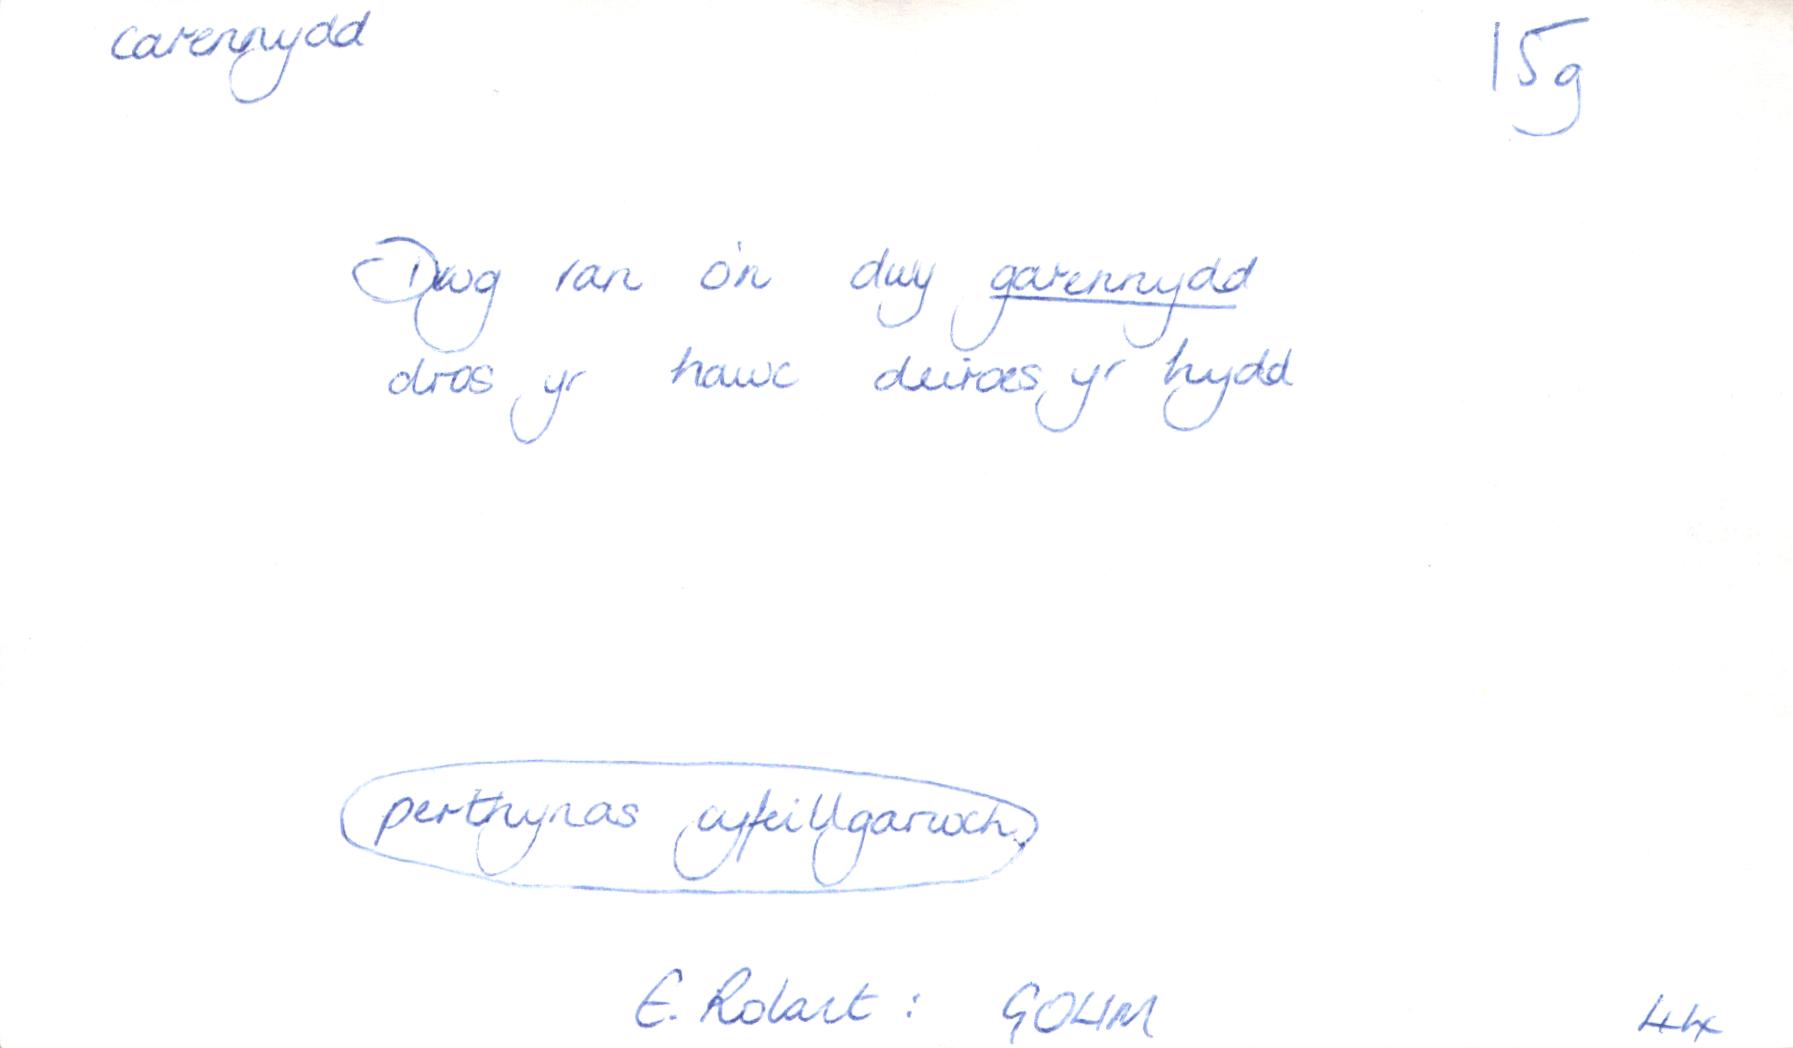 carennydd 15g
Dwg ran o'n dwy garennydd
dros yr hawc deiroes yr hydd
perthynas cyfeillgarwch
E. Rolant: GOLlM 44